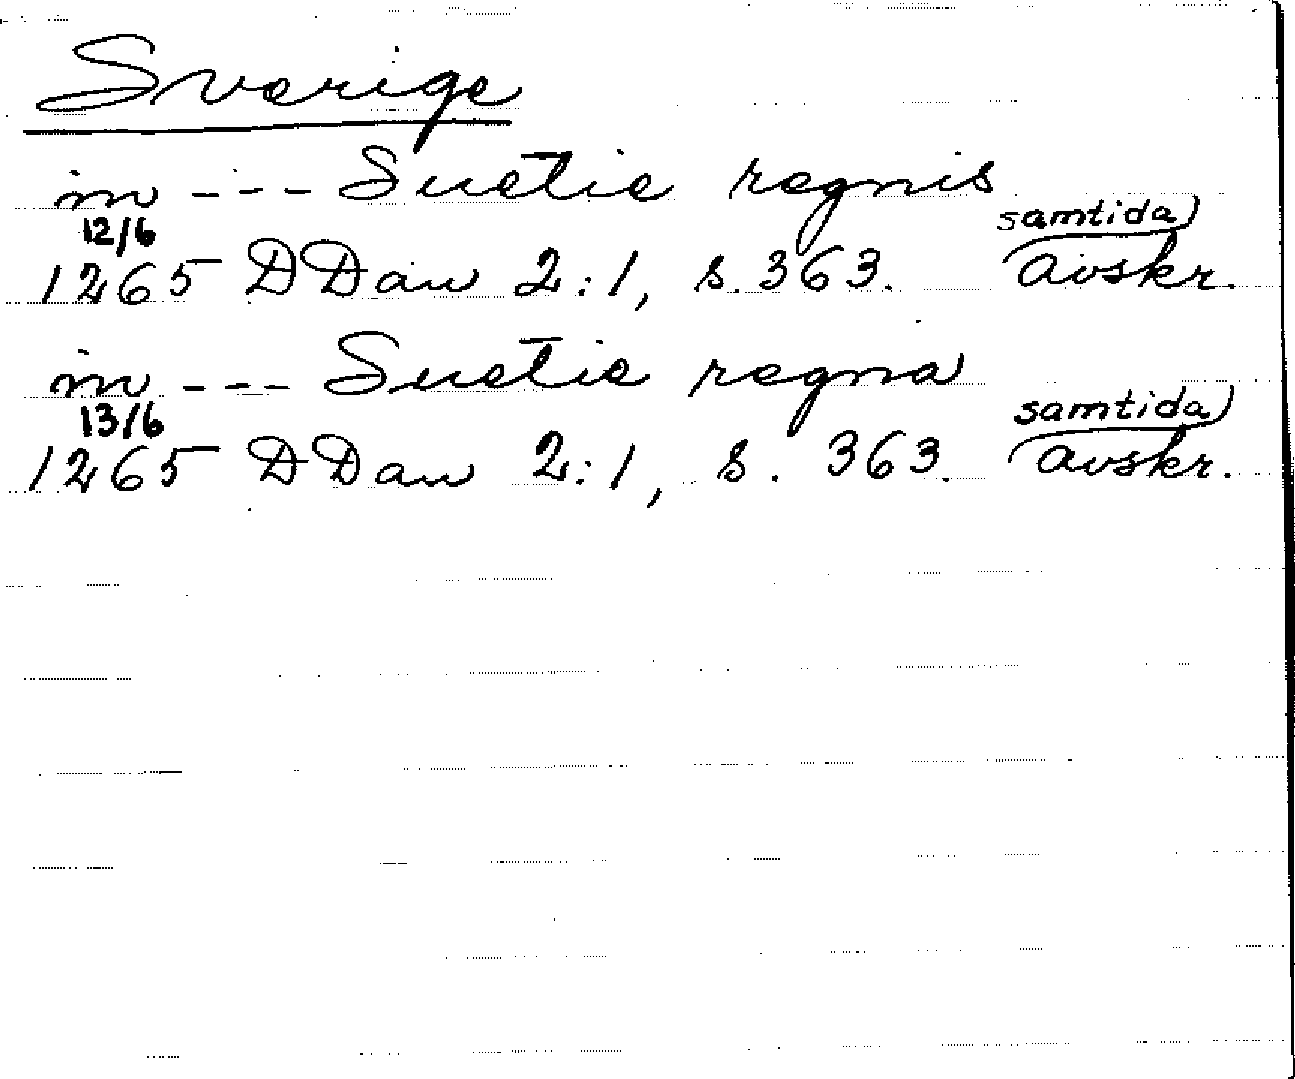 Sverige
in --- Suetie regnis
12/6 samtida
1265 DDan 2:1, s. 363. avskr.
in --- Suetie regna
13/6 samtida
1265 DDan 2:1, s. 363. avskr.